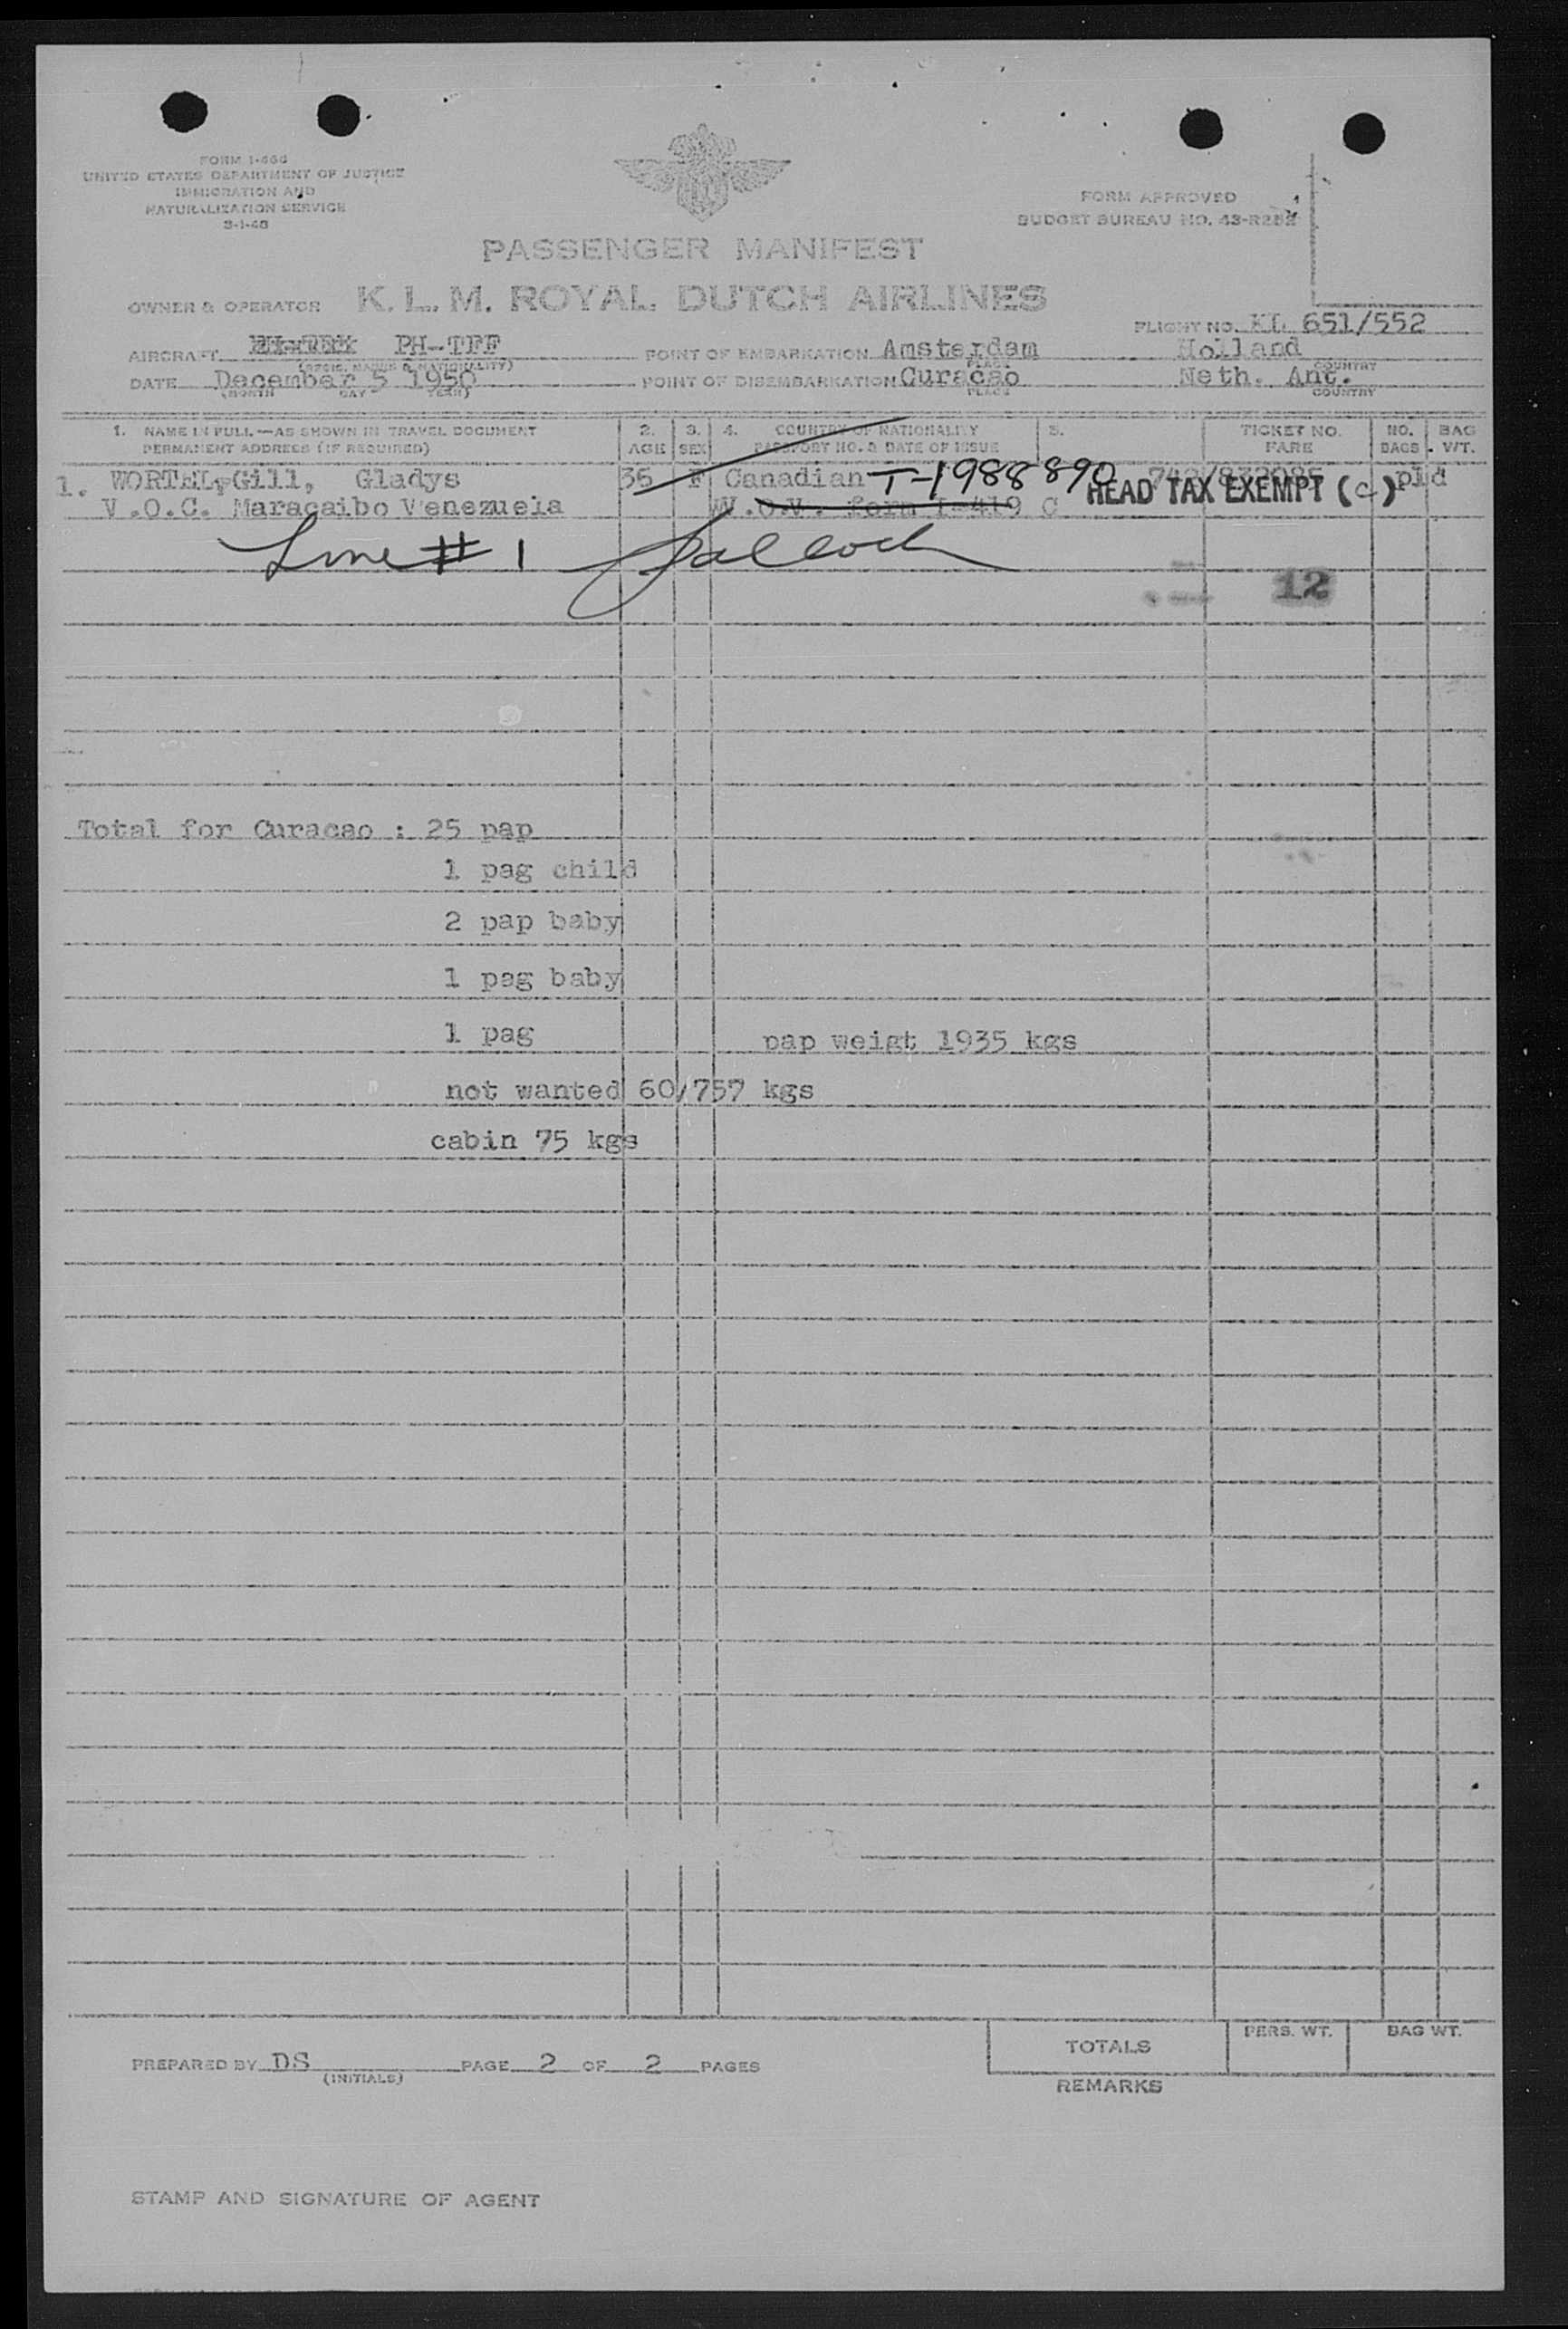 FORM I-466
UNITED STATES DEPARTMENT OF JUSTICE
IMMIGRATION AND
NATURALIZATION SERVICE
3-1-48
FORM APPROVED
BUDGET BUREAU NO. 43-R252
PASSENGER MANIFEST
OWNER & OPERATOR K. L. M. ROYAL DUTCH AIRLINES
FLIGHT NO. KL 651/552
AIRCRAFT PH-TFF POINT OF EMBARKATION Amsterdam Holland
(REGIS. MARKS & NATIONALITY) PLACE COUNTRY
DATE December 5 1950 POINT OF DISEMBARKATION Curacao Neth. Ant.
(MONTH DAY YEAR) PLACE COUNTRY
1. NAME IN FULL—AS SHOWN IN TRAVEL DOCUMENT 2. 3. 4. COUNTRY OF NATIONALITY 5. TICKET NO. NO. BAG
PERMANENT ADDRESS (IF REQUIRED) AGE SEX PASSPORT NO. & DATE OF ISSUE FARE BAGS WT.
1. WORTEL, Gill, Gladys 36 F Canadian T-1988890 pld
HEAD TAX EXEMPT (C)
V.O.C. Maracaibo Venezuela W.O.V. form I-419 C
Line # 1
12
Total for Curacao : 25 pap
1 pag child
2 pap baby
1 pag baby
1 pag pap weigt 1935 kgs
not wanted 60/757 kgs
cabin 75 kgs
PREPARED BY DS PAGE 2 OF 2 PAGES
(INITIALS)
TOTALS PERS. WT. BAG WT.
REMARKS
STAMP AND SIGNATURE OF AGENT